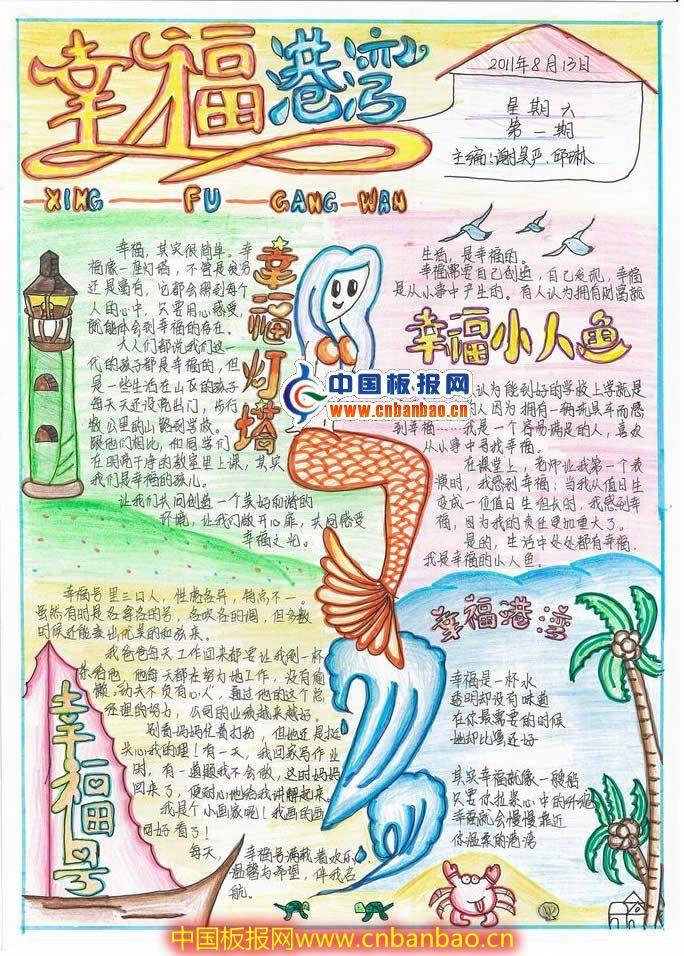 幸福港湾
XING FU GANG WAN
2011年8月13日
星期六
第一期
主编:谢昊严、邱琳
幸福灯塔
幸福，其实很简单。幸
福像一座灯塔，不管是贫穷
还是富有，它都会照到每个
人的心中，只要用心感受，
就能体会到幸福的存在。
大人们都说我们这一
代的孩子都是幸福的，但
是一些生活在山区的孩子
每天天还没亮出门，步行
数公里的山路到学校。
跟他们相比，和同学们
在明亮干净的教室里上课，其实
我们是幸福的孩儿。
让我们共同创造一个美好和谐的
环境，让我们敞开心扉，共同感受
幸福之光。
生活，是幸福的。
幸福需要自己创造，自己发现，幸福
是从小事中产生的。有人认为拥有财富就
幸福小人鱼
认为能到好的学校上学就是
的人因为拥有一辆玩具车而感
到幸福……我是一个容易满足的人，喜欢
从小事中寻找幸福。
在课堂上，老师让我第一个表
演时，我感到幸福；当我从值日生
变成一位值日生组长时，我感到幸
福，因为我的责任更加重大了。
是的，生活中处处都有幸福，
我是幸福的小人鱼。
中国板报网
www.cnbanbao.cn
幸福号
幸福号里三口人，性格各异，特点不一。
虽然有时是各拿各的号，各吹各的调，但多数
时候还能奏出优美的和弦来。
我爸爸每天工作回来都要让我倒一杯
茶给他，他每天都在努力地工作，没有偷
懒。功夫不负有心人，通过他的这个总
经理的努力，公司的业绩越来越好。
别看妈妈忙着打扮，但她还是挺
关心我的哩！有一天，我回家写作业
时，有一道题我不会做，这时妈妈
回来了，便耐心地给我讲解起来。
我是个小画家呢！我画的画
可好看了！
每天，幸福号满载着欢乐、
温馨与希望，伴我启
航。
幸福港湾
幸福是一杯水
透明却没有味道
在你最需要的时候
她却比蜜还好
其实幸福就像一艘船
只要你拉紧心中的纤绳
幸福就会慢慢靠近
你温柔的港湾
中国板报网www.cnbanbao.cn